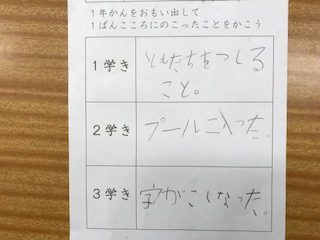 1年かんをおもい出して
1ばんこころにのこったことをかこう
1学き
ともだちをつくる
こと。
2学き
プールに入った。
3学き
字がこくなった。